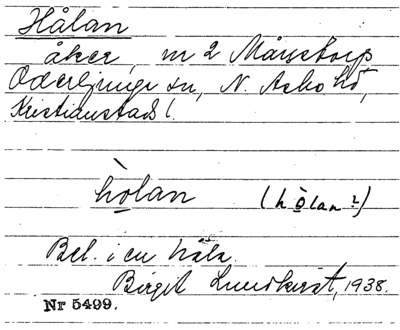 Hålan
åker, m 2 Månstorp
Oderljunga sn, N. Åsbo hd,
Kristianstads l.
hòlan (hòlan?)
Bel. i en håla
Birgit Lundkvist, 1938.
Nr 5499.